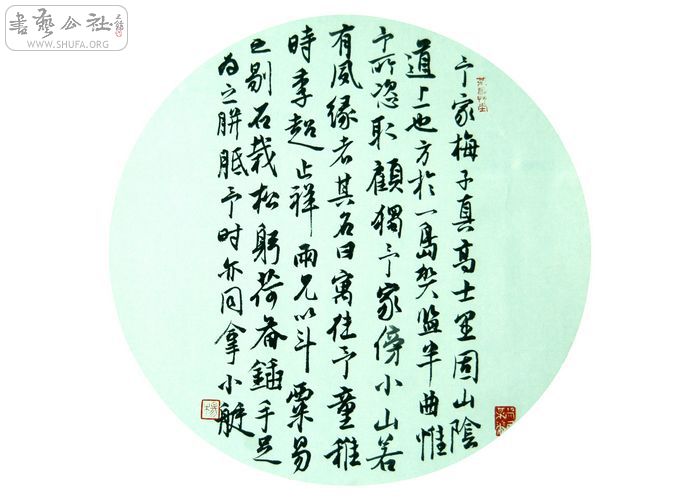 書藝公社
WWW.SHUFA.ORG
予家梅子真高士里固山陰
道上也方於一島賀監半曲惟
予所恣取顧獨予家傍小山若
有夙緣者其名曰寓往予童稚
時季超止祥兩兄以斗粟易
之剔石栽松躬荷畚鍤手足
為之胼胝予時亦同拿小艇